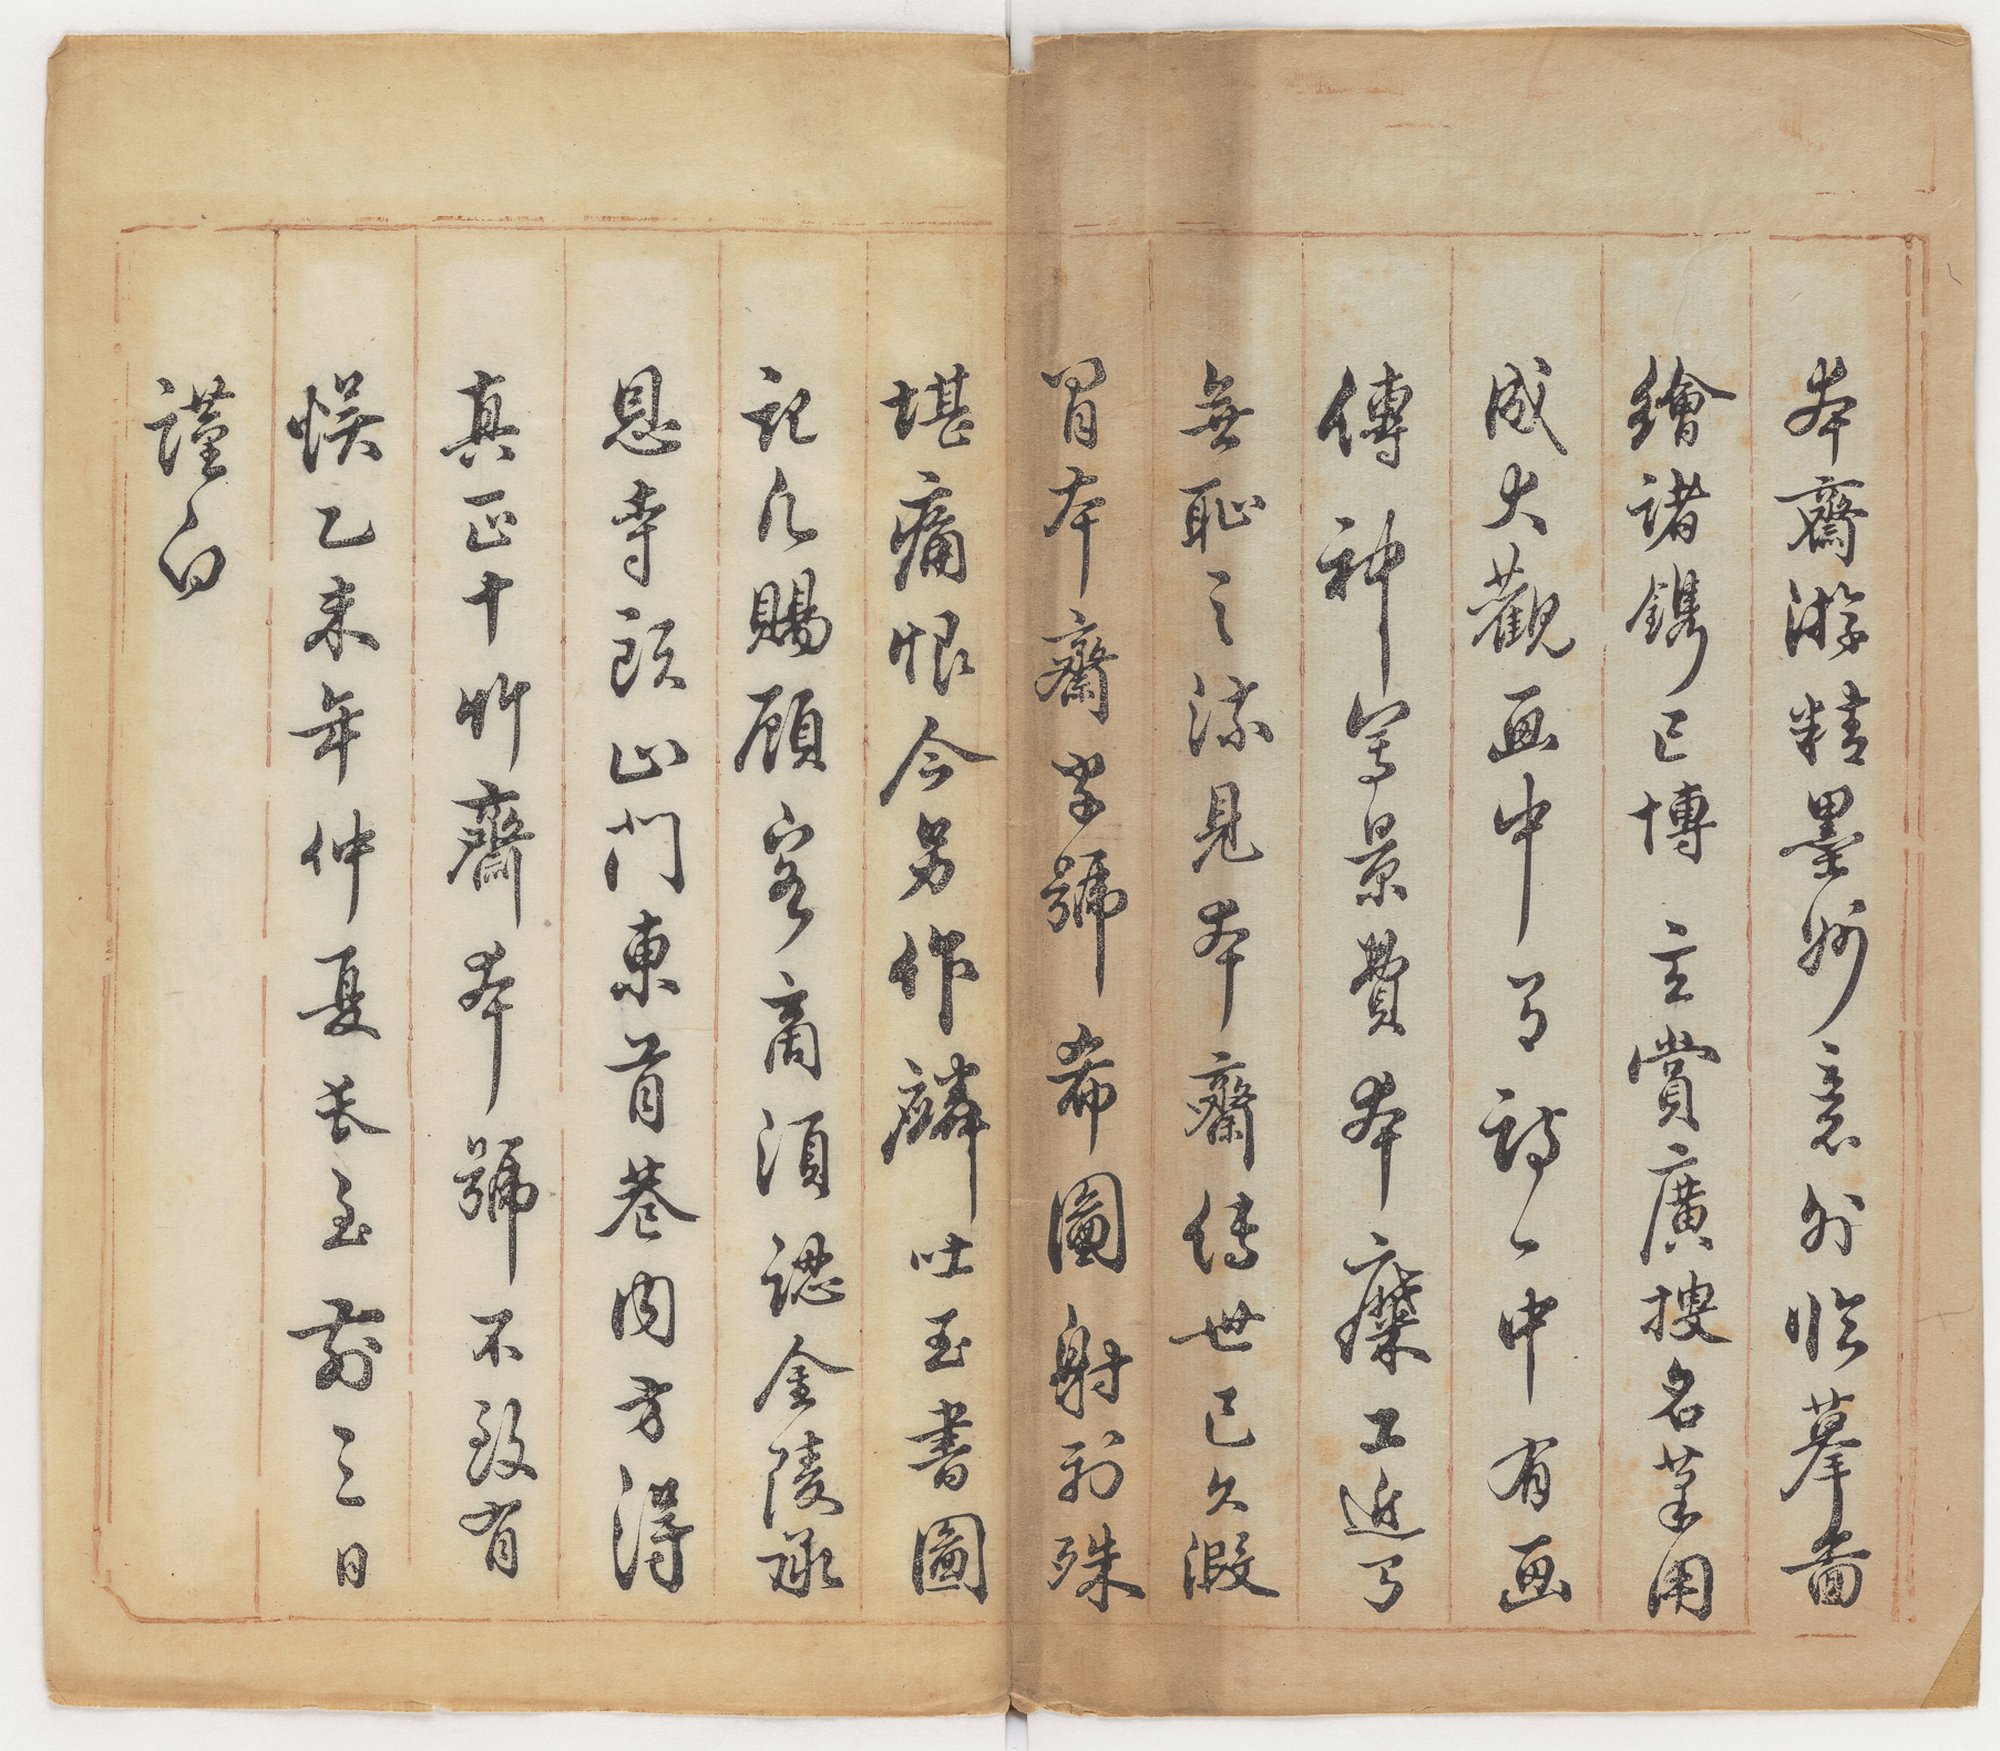 本齋游精墨妙意外臨摹畵
繪諸鐫已博立賞廣搜名筆用
成大觀画中有詩〻中有画
傳神寫景費本糜工近有
無恥之流見本齋傳世已久假
冒本齋字號希圖射利殊
堪痛恨今另作麟吐玉書圖
記凡賜顧客商須認金陵承
恩寺頭山門東首巷内方得
真正十竹齋本號不致有
悮乙未年仲夏長至前三日
謹白